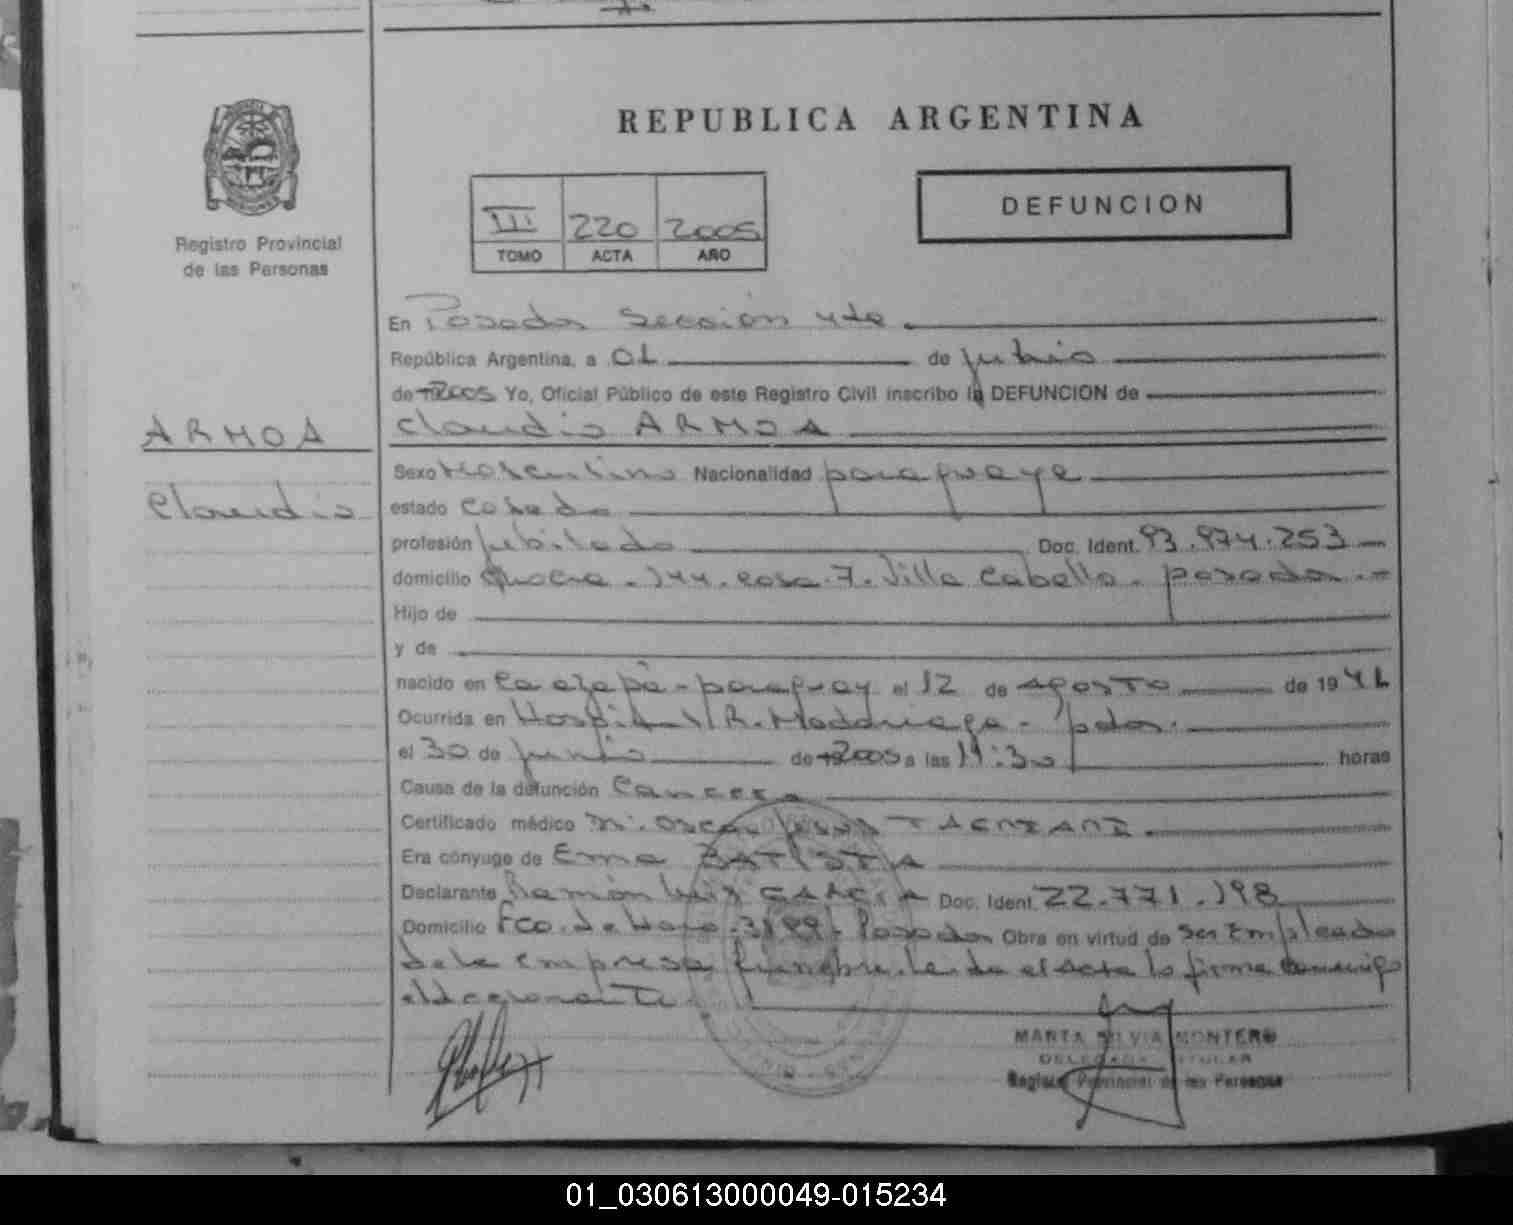 REPUBLICA ARGENTINA
DEFUNCION
III 220 2005
TOMO ACTA AÑO
Registro Provincial
de las Personas
En Posadas Sección 4ta
República Argentina, a 01 de julio
de 2005 Yo, Oficial Público de este Registro Civil inscribo la DEFUNCION de
Claudio ARMOA
ARMOA
Claudio
Sexo Masculino Nacionalidad paraguaya
estado Casado
profesión jubilado Doc. Ident. 93.974.253
domicilio 144. casa. 7. Villa Cabello. posadas.-
Hijo de
y de
nacido en Caazapá - paraguay el 12 de Agosto de 1941
Ocurrida en Hospital R. Madariaga - pdas.
el 30 de junio de 2005 a las 19:30 horas
Causa de la defunción Cancer
Certificado médico Dr. Oscar
Era cónyuge de Erma BATISTA
Declarante Ramón Luis GARCIA Doc. Ident. 22.771.198
Domicilio Fco. de Haro. 3199 Posadas Obra en virtud de ser Empleado
de la empresa fúnebre. Leída el Acta la firma conmigo
el declarante.
MARTA SILVIA MONTERO
DELEGADA TITULAR
Registro Provincial de las Personas
01_030613000049-015234